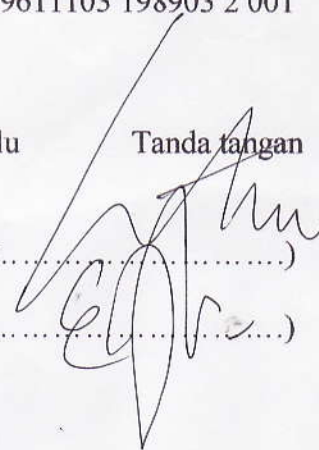 9611103 198903 2 001
lu Tanda tangan
...........................)
...........................)